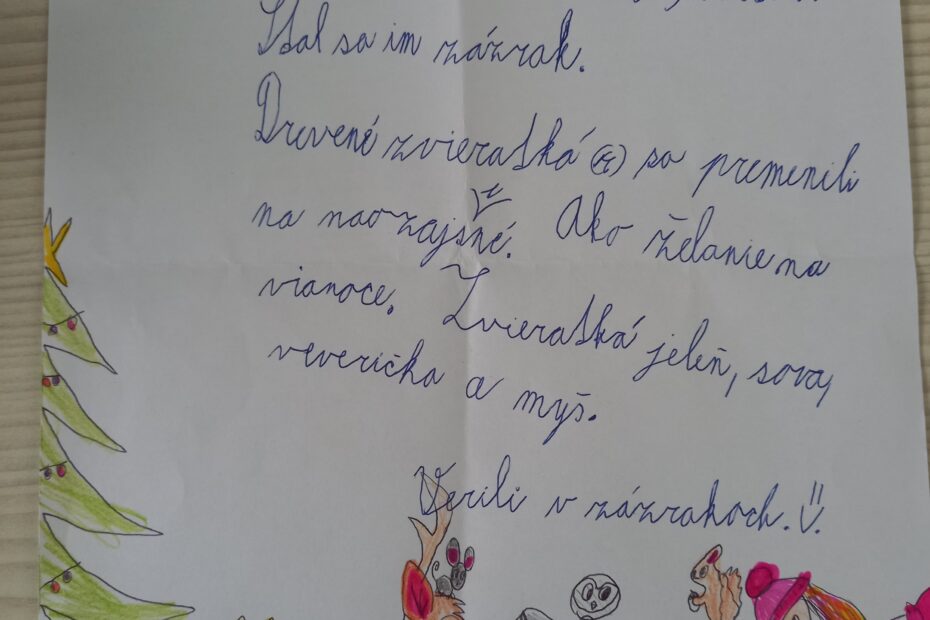 Stal sa im zázrak.
Drevené zvieratká (4) sa premenili
na naozajstné. Ako želanie na
vianoce. Zvieratká jeleň, sova,
veverička a myš.
Verili v zázrakoch.